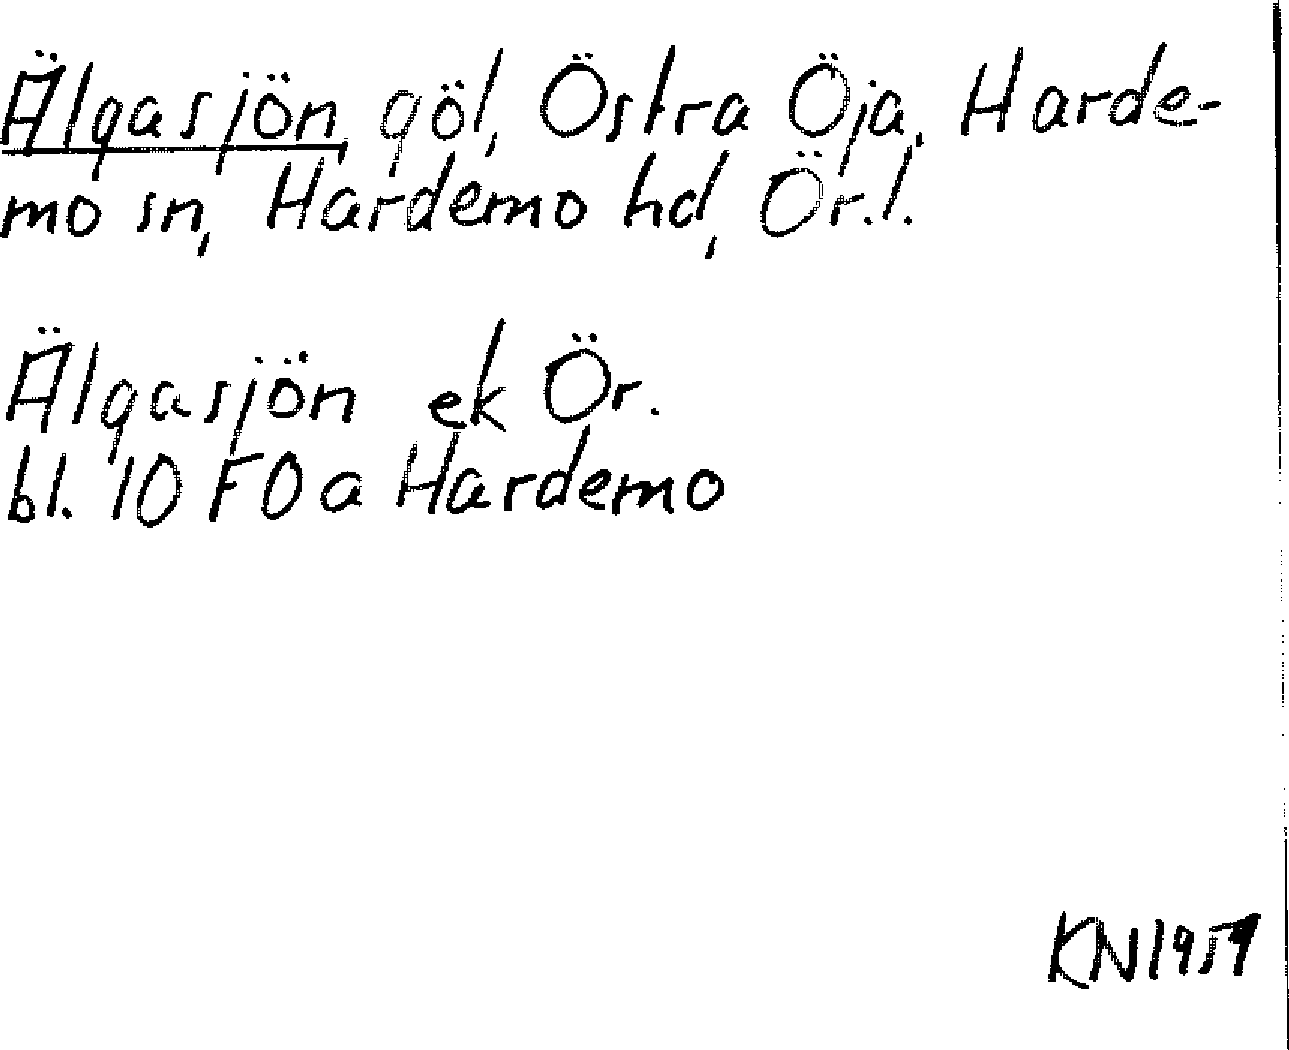 Älgasjön, göl, Östra Öja, Harde-
mo sn, Hardemo hd, Ör.l.
Älgasjön ek Ör.
bl. 10 FOa Hardemo